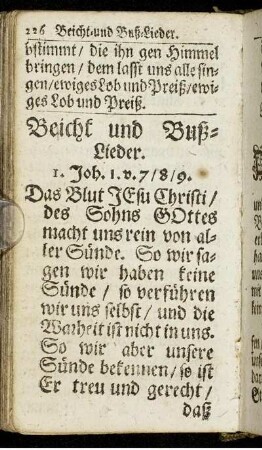 226 Beicht-und Buß-Lieder.
bstimmt / die ihn gen Himmel
bringen / dem lasst uns alle sin-
gen/ewiges Lob und Preiß/ewi-
ges Lob und Preiß.
Beicht und Buß-
Lieder.
1. Joh. 1. v. 7/8/9.
Das Blut JEsu Christi /
des Sohns GOttes
macht uns rein von al-
ler Sünde. So wir sa-
gen wir haben keine
Sünde / so verführen
wir uns selbst / und die
Warheit ist nicht in uns.
So wir aber unsere
Sünde bekennen / so ist
Er treu und gerecht /
daß